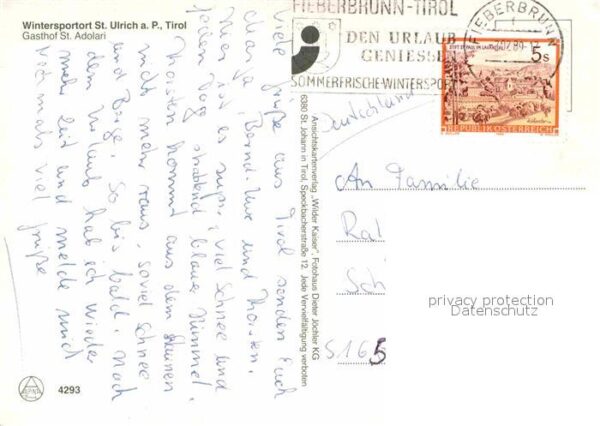 Wintersportort St. Ulrich a. P., Tirol
Gasthof St. Adolari
FIEBERBRUNN-TIROL
DEN URLAUB
GENIESSEN
SOMMERFRISCHE-WINTERSPORT
FIEBERBRUNN
5s
REPUBLIK ÖSTERREICH
Viele Grüße aus Tirol senden Euch
Bernd-Uwe und Thorsten.
Hier ist es super, viel Schnee und
jeden Tag strahlend blauer Himmel.
Thorsten kommt aus dem Staunen
nicht mehr raus, soviel Schnee
und Berge. So bis bald. Nach
dem Urlaub hab ich wieder
mehr Zeit und melde mich
Nochmals viel Grüße
Ansichtskartenverlag „Wilder Kaiser", Fotohaus Dieter Jöchler KG
6380 St. Johann in Tirol, Speckbacherstraße 12. Jede Vervielfältigung verboten
Deutschland
An Familie
Ral
Sch
5165
privacy protection
Datenschutz
4293